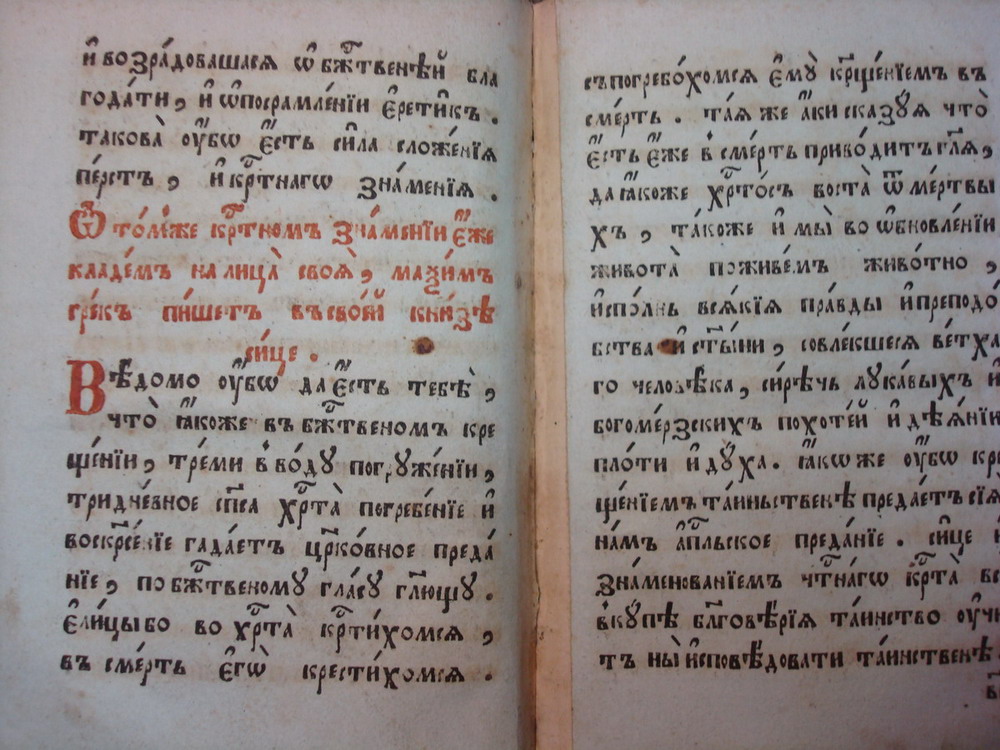 и҆ возра́довашасѧ ѡ҆ бжⷭ҇твенѣй бла
года́ти, и҆ ѡ҆посрамле́нїи є҆рети́къ.
такова̀ ᲂу҆́бѡ є҆́сть си́ла сложе́нїѧ
пе́рстъ, и҆ крⷭ҇тнагѡ зна́менїѧ.
Ѽ то́мже крⷭ҇тномъ зна́менїи є҆́же
кладе́мъ на лица̀ своѧ̀, маѯи́мъ
гре́къ пи́шетъ въ свое́й кни́зѣ
си́це.
Вѣ́домо ᲂу҆́бѡ да є҆́сть тебѣ̀,
что̀ ꙗ҆́коже въ бжⷭ҇твеномъ кре
ще́нїи, тре́ми в во́ду погруже́нїи,
тридне́вное сп҃са хрⷭ҇та̀ погребе́нїе и҆
воскрⷭ҇се́нїе гада́етъ цр҃ко́вное преда́
нїе, по бжⷭ҇твеному гла́су гл҃ющу.
є҆ли́цы бо во хрⷭ҇та̀ крⷭ҇ти́хомсѧ,
въ сме́рть є҆гѡ̀ крести́хомсѧ.
съпогребо́хомсѧ є҆мꙋ̀ кр҃ще́нїемъ въ
сме́рть. та́ѧ же а҆́ки сказꙋ́ѧ что̀
є҆́сть є҆́же в сме́рть приво́дитъ гл҃ѧ,
да ꙗ҆́коже хрⷭ҇то́съ воста̀ ѿ ме́ртвы
хъ, та́коже и҆ мы̀ во ѡ҆бновле́нїи
живота̀ пожи́ве́мъ живо́тно,
и҆спо́лнь всѧ́кїѧ пра́вды и҆ преподо́
бства и҆ ст҃ы́ни, совле́кшесѧ ве́тха
го человѣ́ка, си́рѣчь лꙋка́выхъ и҆
богоме́рзскихъ по́хоте́й и҆ дѣѧ́нїи
пло́ти и҆ дꙋ́ха. ꙗ҆́кѡже ᲂу҆́бѡ кр
ще́нїемъ та́иньственѣ преда́етъ сїѧ̀
на́мъ а҆пⷭ҇льское преда́нїе. си́це и҆
зна́менованїемъ чтⷭ҇на́гѡ крⷭ҇та̀ вс
вкꙋ́пѣ бл҃гове́рїѧ та́инство ᲂу҆чи
тъ ны̀ и҆сповѣ́довати та́инственѣ